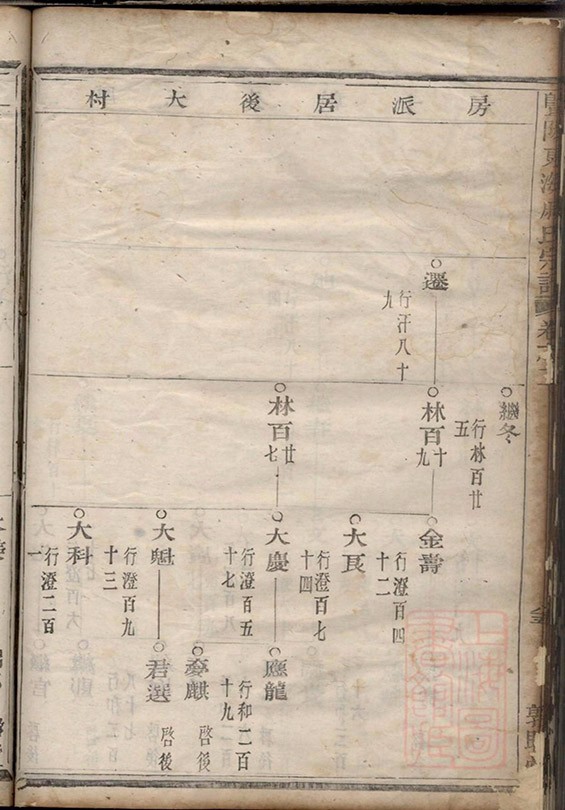 房派居後大村
繼冬
行林百廿五
遷
行汗八十九
林百十九
金壽
行澄百四十二
大良
行澄百七十四
林百廿七
大慶
行澄百五十七
應龍
行和二百十九
夢麒
啓後
大魁
行澄百九十三
君選
啓後
大科
行澄二百一